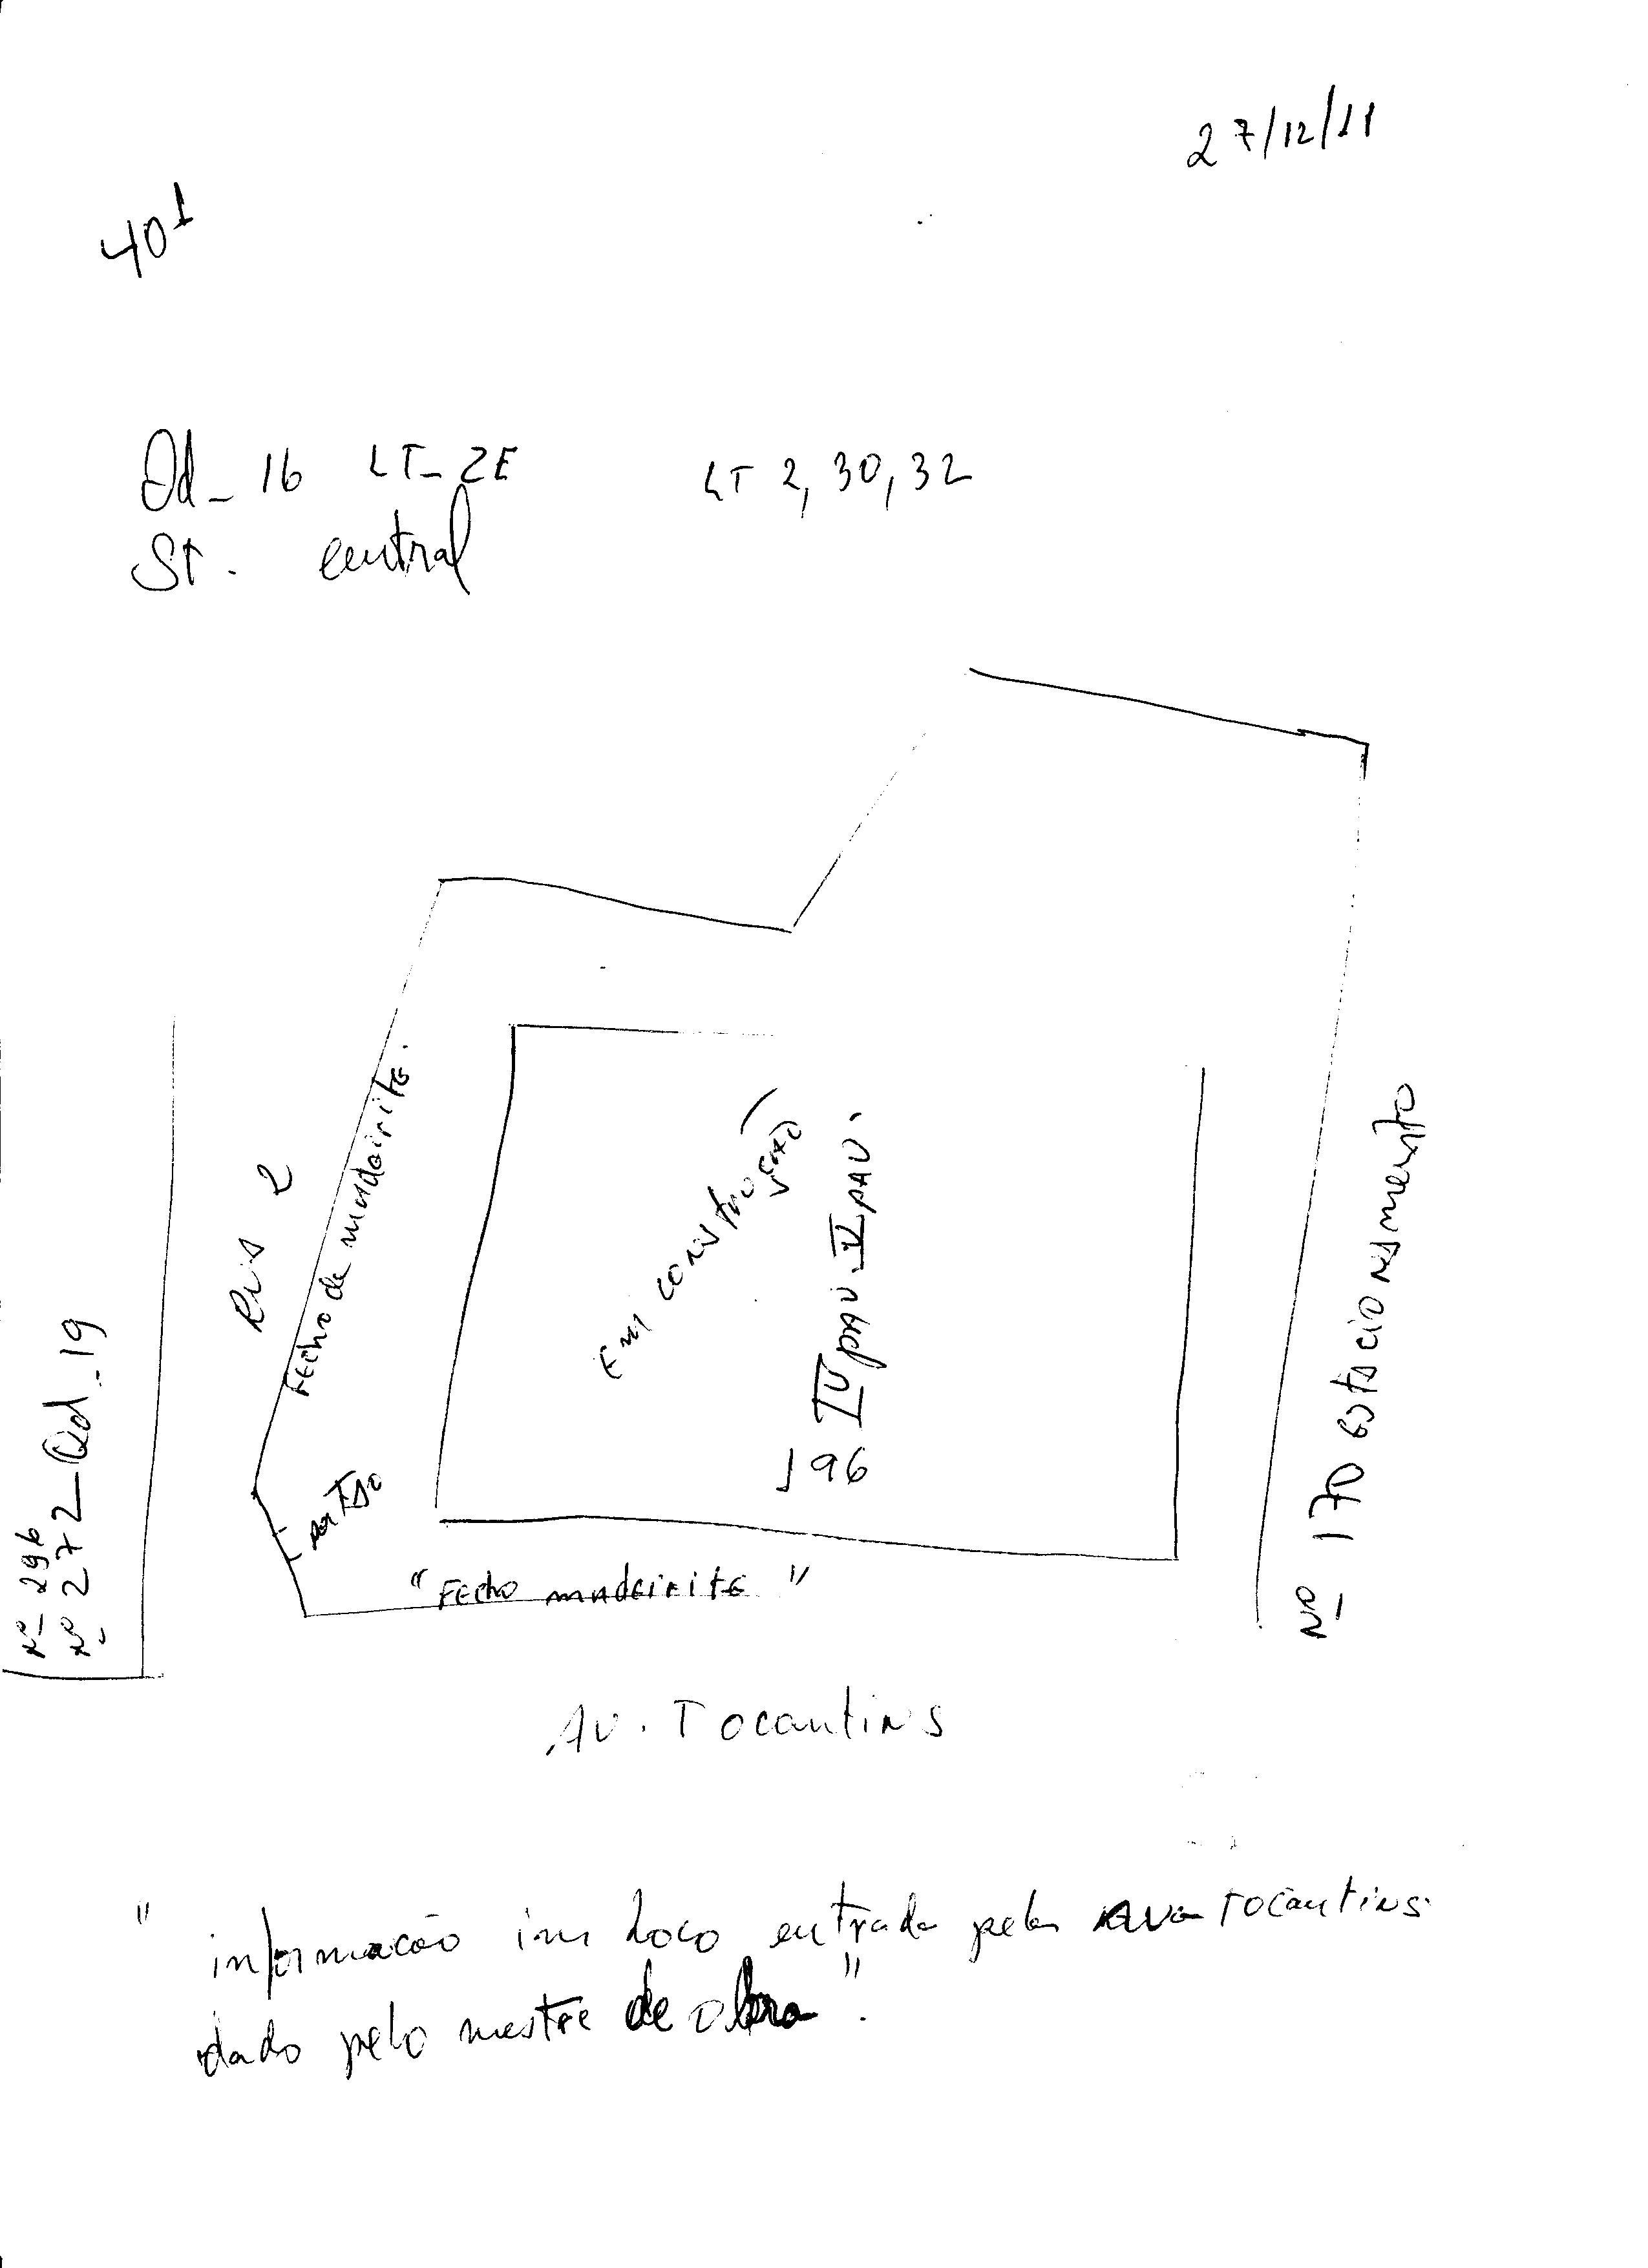 27/12/11
401
Qd_ 16 LT_ 2E LT 2, 30, 32
St. central
Rua 2
Fecho de madeirite.
Em construção
IV PAV. V PAV.
196
portão
"Fecho madeirite"
Nº 296
Nº 272_Qd_19
Nº 170 estacionamento
Av. Tocantins
" informação im loco entrada pela Tocantins.
dado pelo mestre de obra".